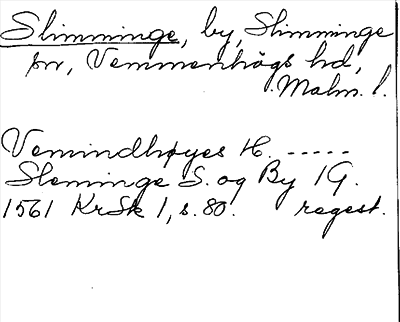 Slimminge, by, Slimminge
sn, Vemmenhögs hd,
Malm. l.
Vemindhøyes H. -----
Sleminge S. og By 1G.
1561 KrSk 1, s. 80. regest.